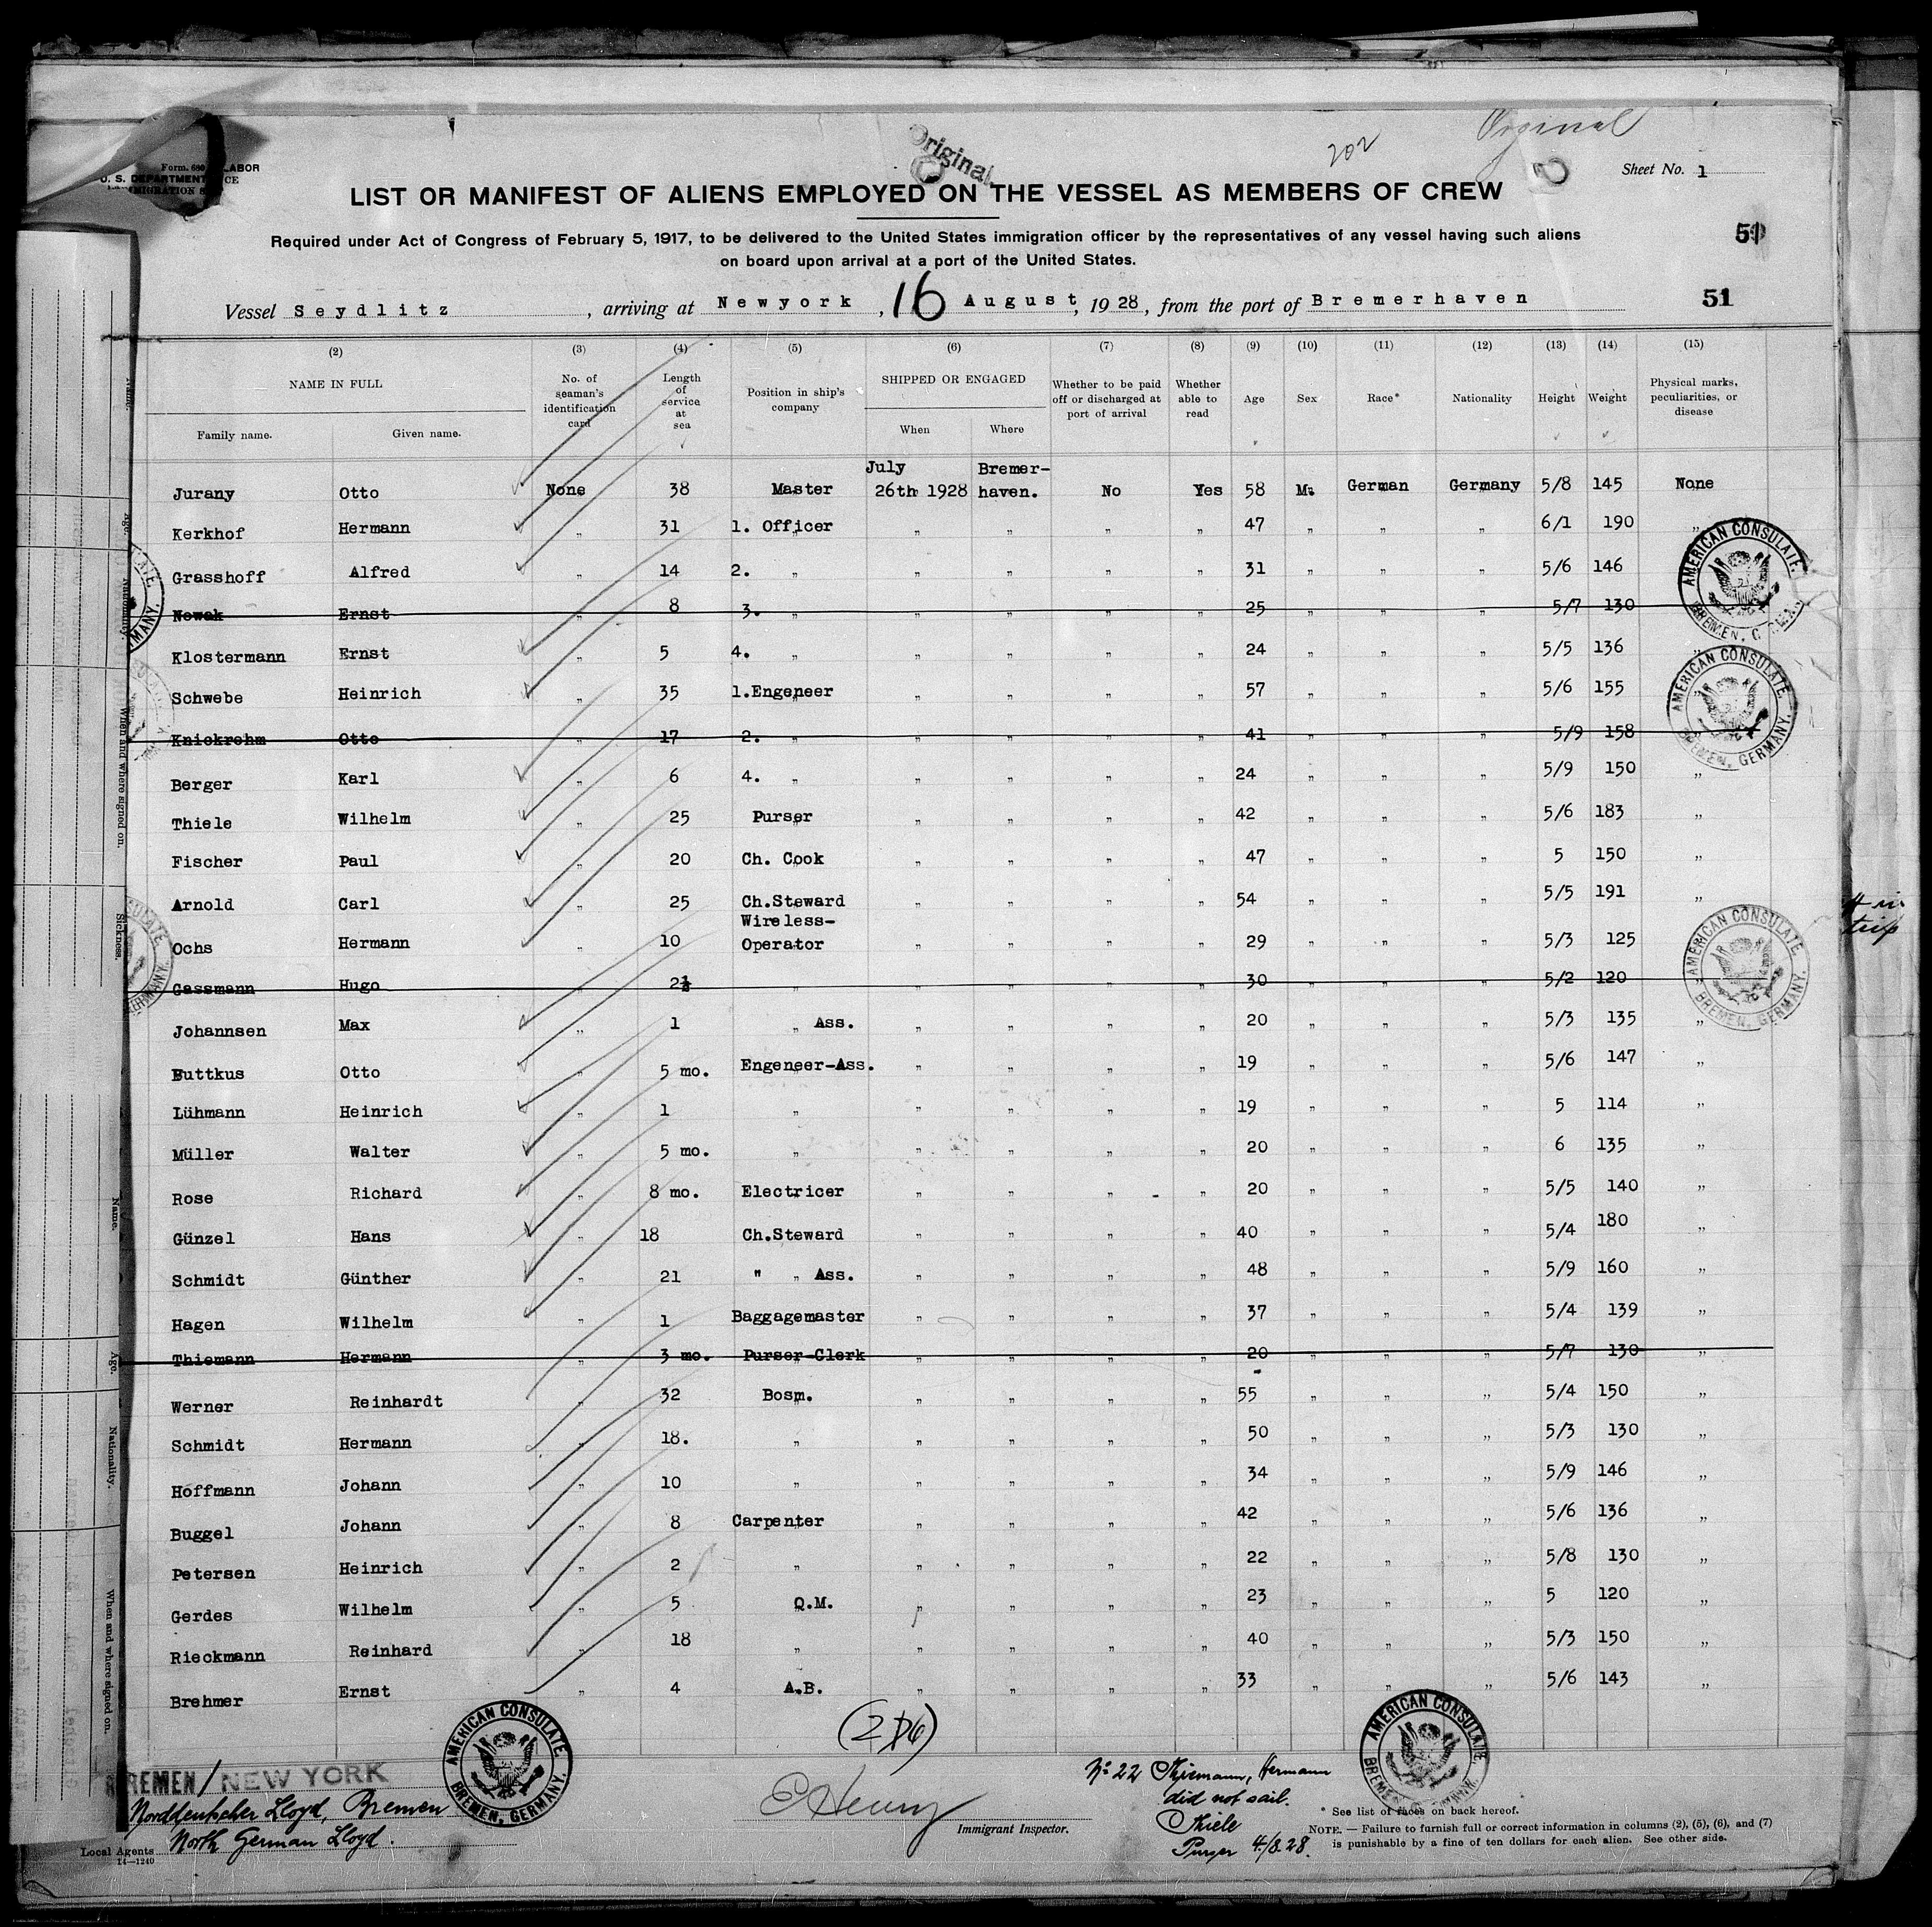 Original
202
Orginal
Form. 680
U. S. DEPARTMENT LABOR
IMMIGRATION S CE
Sheet No. 1
LIST OR MANIFEST OF ALIENS EMPLOYED ON THE VESSEL AS MEMBERS OF CREW
Required under Act of Congress of February 5, 1917, to be delivered to the United States immigration officer by the representatives of any vessel having such aliens
on board upon arrival at a port of the United States.
51
Vessel Seydlitz, arriving at Newyork, 16 August, 1928, from the port of Bremerhaven
(2) (3) (4) (5) (6) (7) (8) (9) (10) (11) (12) (13) (14) (15)
NAME IN FULL No. of seaman's identification card Length of service at sea Position in ship's company SHIPPED OR ENGAGED Whether to be paid off or discharged at port of arrival Whether able to read Age Sex Race* Nationality Height Weight Physical marks, peculiarities, or disease
Family name. Given name. When Where
Jurany Otto None 38 Master July 26th 1928 Bremer-haven. No Yes 58 M. German Germany 5/8 145 None
Kerkhof Hermann " 31 1. Officer " " " " 47 " " " 6/1 190 "
Grasshoff Alfred " 14 2. " " " " " 31 " " " 5/6 146
Nowak Ernst " 8 3. " " " " " 25 " " " 5/7 130
Klostermann Ernst " 5 4. " " " " " 24 " " " 5/5 136 "
Schwebe Heinrich " 35 1.Engeneer " " " " 57 " " " 5/6 155
Knickrehm Otto " 17 2. " " " " " 41 " " " 5/9 158 "
Berger Karl " 6 4. " " " " " 24 " " " 5/9 150 "
Thiele Wilhelm " 25 Purser " " " " 42 " " " 5/6 183 "
Fischer Paul " 20 Ch. Cook " " " " 47 " " " 5 150 "
Arnold Carl " 25 Ch.Steward " " " " 54 " " " 5/5 191 "
Ochs Hermann " 10 Wireless-Operator " " " " 29 " " " 5/3 125
Gassmann Hugo " 2½ " " " " " 30 " " " 5/2 120
Johannsen Max " 1 " Ass. " " " " 20 " " " 5/3 135 "
Buttkus Otto " 5 mo. Engeneer-Ass. " " " " 19 " " " 5/6 147 "
Lühmann Heinrich " 1 " " " " " 19 " " " 5 114 "
Müller Walter " 5 mo. " " " " " 20 " " " 6 135 "
Rose Richard " 8 mo. Electricer " " " " 20 " " " 5/5 140 "
Günzel Hans " 18 Ch.Steward " " " " 40 " " " 5/4 180 "
Schmidt Günther " 21 " " Ass. " " " " 48 " " " 5/9 160 "
Hagen Wilhelm " 1 Baggagemaster " " " " 37 " " " 5/4 139 "
Thiemann Hermann " 3 mo. Purser-Clerk " " " " 20 " " " 5/7 130 "
Werner Reinhardt " 32 Bosm. " " " " 55 " " " 5/4 150 "
Schmidt Hermann " 18. " " " " " 50 " " " 5/3 130 "
Hoffmann Johann " 10 " " " " " 34 " " " 5/9 146 "
Buggel Johann " 8 Carpenter " " " " 42 " " " 5/6 136 "
Petersen Heinrich " 2 " " " " " 22 " " " 5/8 130 "
Gerdes Wilhelm " 5 Q.M. " " " " 23 " " " 5 120 "
Rieckmann Reinhard " 18 " " " " " 40 " " " 5/3 150 "
Brehmer Ernst " 4 A.B. " " " " 33 " " " 5/6 143 "
AMERICAN CONSULATE. BREMEN, GERMANY.
AMERICAN CONSULATE. BREMEN, GERMANY.
AMERICAN CONSULATE. BREMEN, GERMANY.
AMERICAN CONSULATE. BREMEN, GERMANY.
AMERICAN CONSULATE. BREMEN, GERMANY.
BREMEN / NEW YORK
Norddeutscher Lloyd, Bremen
North German Lloyd.
Local Agents
14—1240
E Henry
Immigrant Inspector.
No 22 Thiemann, Hermann
did not sail.
Thiele
Purser 4./8.28.
* See list of races on back hereof.
NOTE. — Failure to furnish full or correct information in columns (2), (5), (6), and (7)
is punishable by a fine of ten dollars for each alien. See other side.
Name.
Age.
Nationality.
When and where signed on.
Sickness.
Name.
Age.
Nationality.
When and where signed on.
trip